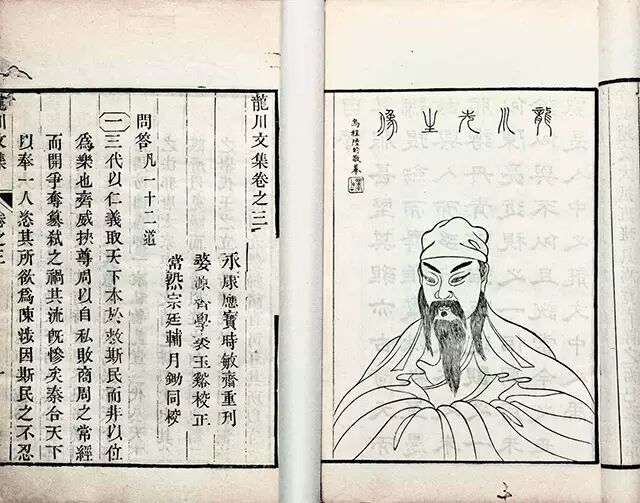 龍川先生像
烏程陸敬摹
龍川文集卷之三
永康應寶時敏齋重刊
婺源學玉谿校正
常熟宗廷輔月鋤同校
問答凡一十二道
一三代以仁義取天下本於救斯民而非以位
爲樂也齊威挾尊周以自私敗商周之常經
而開爭奪簒弒之禍其流旣慘矣秦合天下
以奉一人恣其所欲爲陳涉因斯民之不忍
龍川文集 卷之三